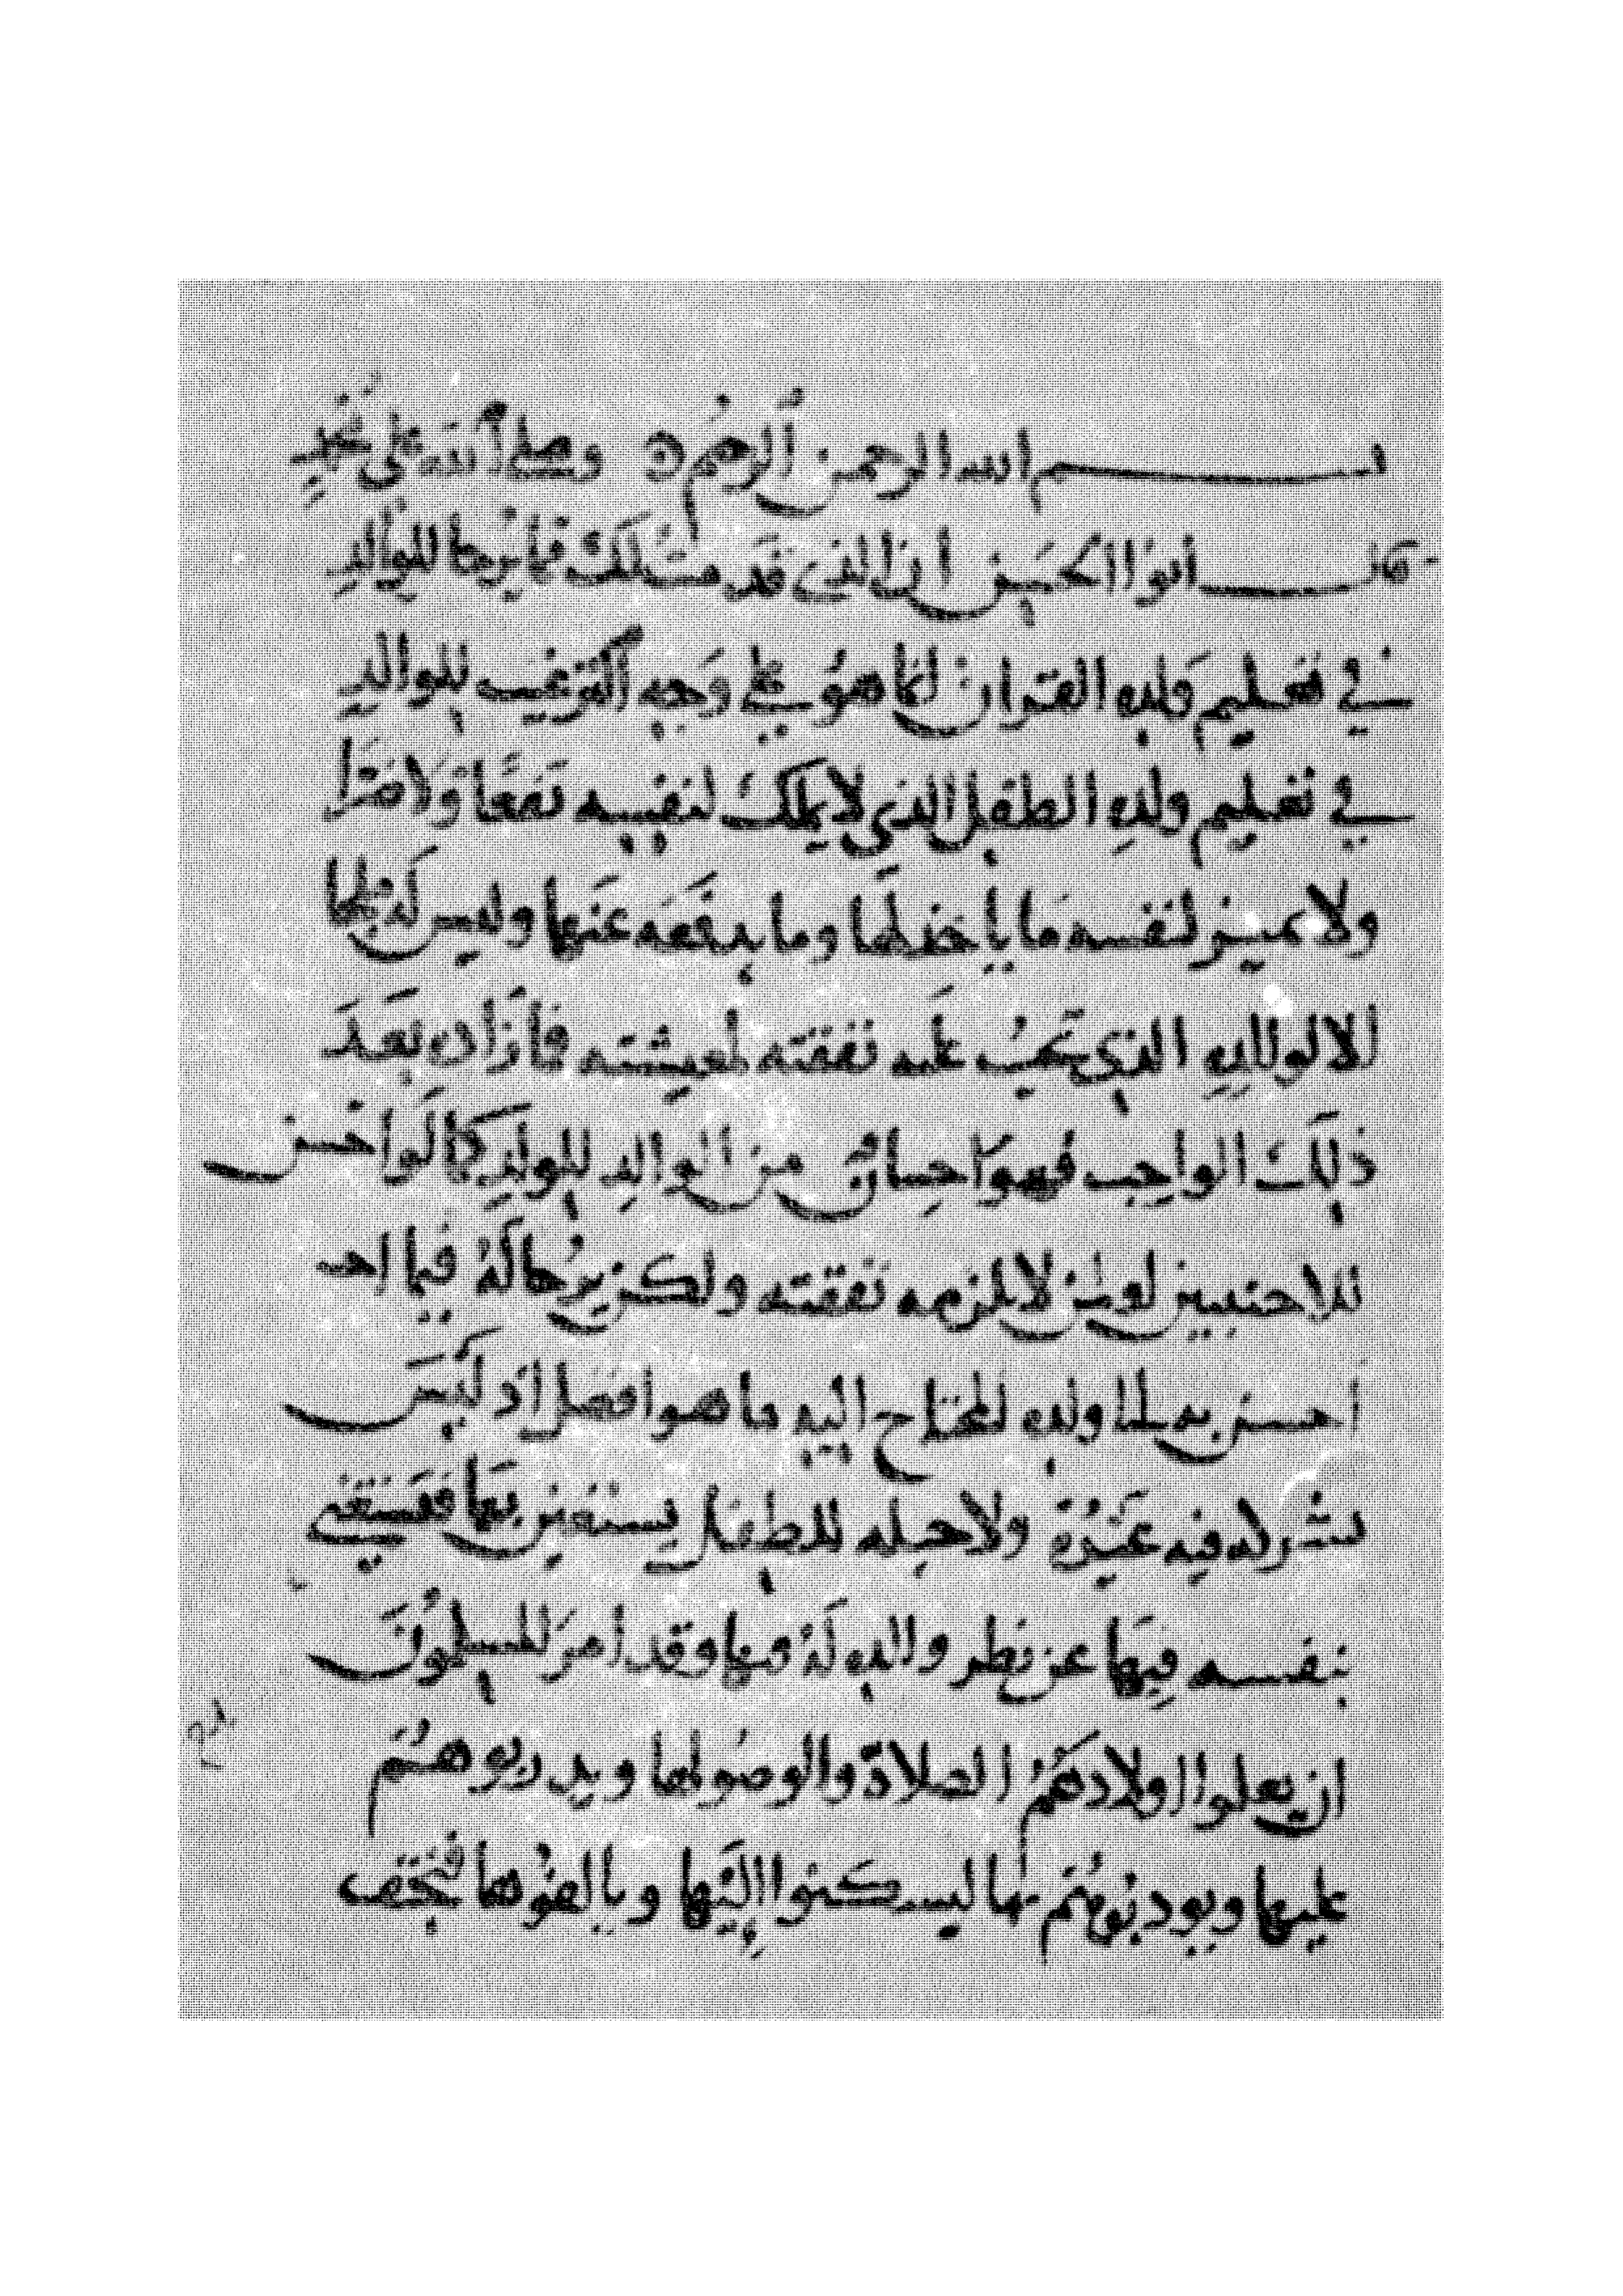 بسم الله الرحمن الرحيم وصلى الله على محمد
قال أبوا الحسن إن الذي قد مثلك فما يرجا للوالد
في تعليم ولده القرآن إنما هو على وجه الترغيب للوالد
في تعليم ولده الطفل الذي لا يملك لنفسه نفعًا ولا ضرا
ولا يميز لنفسه ما ياخذ لها وما يدفعه عنها وليس له ملجا
الا لوالده الذي تجب عليه نفقته لمعيشته فما زاد بعد
ذلك الواجب فهو احسان من الوالد للولد كما لو احسن
للاجنبيين لو لمن لا يلزمه نفقته ولكن يرجا له فيما احـ
احسن به لما ولده المحتاج اليه ما هو افضل اذ ليس
يشركه فيه غيره ولا حيله للطفل يستعين بها فيستغني
بنفسه فيها عن نظر والده له فيها وقد امر المسلمون
ان يعلموا اولادهم الصلاة والوضو لها ويدربوهم
عليها ويودبوهم بها ليسكنوا إليها ويالفوها فتخف